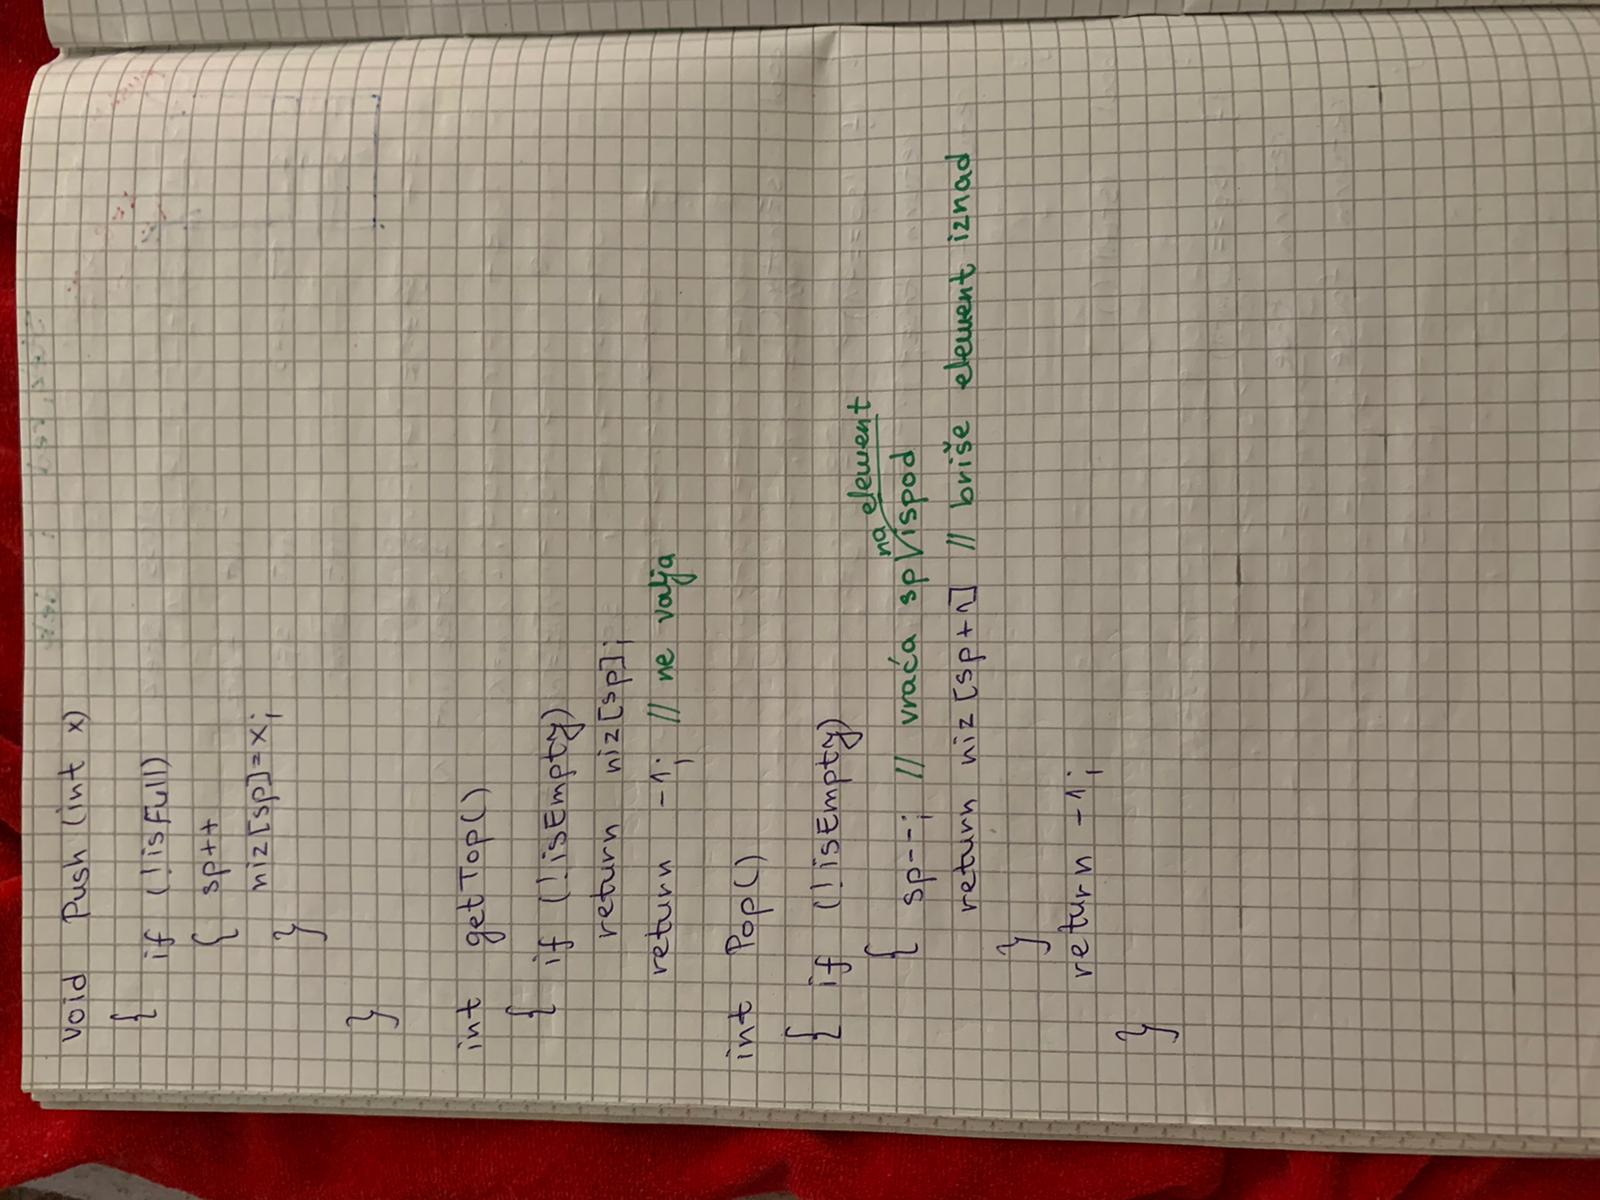 void Push (int x)
{
if (!isFull)
{ sp++
niz[sp]=x;
}
}
int getTop()
{ if (!isEmpty)
return niz[sp];
return -1; // ne valja
int Pop()
{ if (!isEmpty)
{ sp--; // vraća sp na element ispod
return niz [sp+1] // briše element iznad
}
return -1;
}